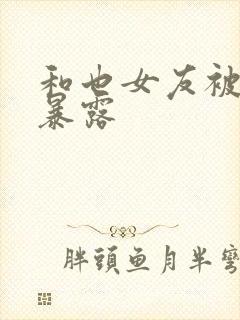 和也女友被
暴露
胖頭鱼月半彎